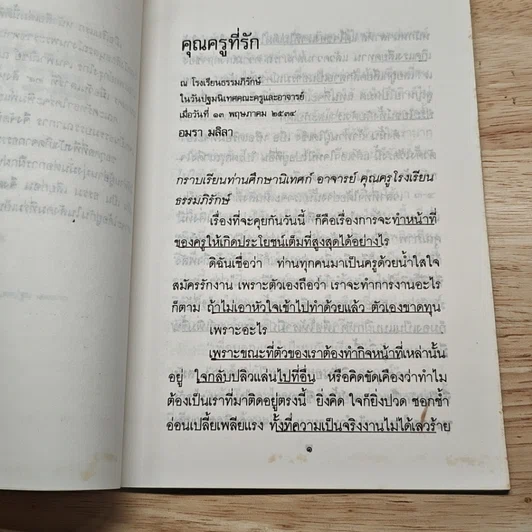 คุณครูที่รัก
ณ โรงเรียนธรรมภิรักษ์
ในวันปฐมนิเทศคณะครูและอาจารย์
เมื่อวันที่ ๑๓ พฤษภาคม ๒๕๓๔
อมรา มลิลา
กราบเรียนท่านศึกษานิเทศก์ อาจารย์ คุณครูโรงเรียน
ธรรมภิรักษ์
เรื่องที่จะคุยกันวันนี้ ก็คือเรื่องการจะทำหน้าที่
ของครูให้เกิดประโยชน์เต็มที่สูงสุดได้อย่างไร
ดิฉันเชื่อว่า ท่านทุกคนมาเป็นครูด้วยน้ำใสใจ
สมัครรักงาน เพราะตัวเองถือว่า เราจะทำการงานอะไร
ก็ตาม ถ้าไม่เอาหัวใจเข้าไปทำด้วยแล้ว ตัวเองขาดทุน
เพราะอะไร
เพราะขณะที่ตัวของเราต้องทำกิจหน้าที่เหล่านั้น
อยู่ ใจกลับปลิวแล่นไปที่อื่น หรือคิดขัดเคืองว่าทำไม
ต้องเป็นเราที่มาติดอยู่ตรงนี้ ยิ่งคิด ใจก็ยิ่งปวด ชอกช้ำ
อ่อนเปลี้ยเพลียแรง ทั้งที่ความเป็นจริงงานไม่ได้เลวร้าย
๑